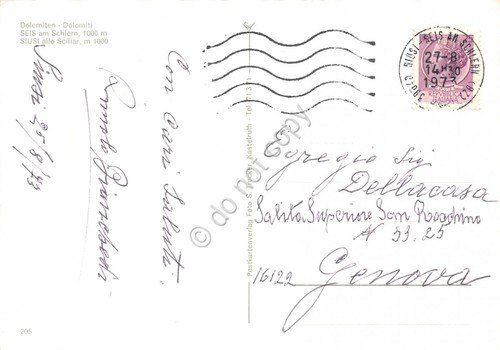 Dolomiten - Dolomiti
SEIS am Schlern, 1000 m
SIUSI allo Sciliar, m 1000
Siusi 25/8/73
Con Cari Saluti
Postkartenverlag Foto Kastelruth - Tel. 71371
39040 SIUSI - SEIS AM SCHLERN (BZ)
27-8
1973
Egregio Sig.
Dellacasa
Salita Superiore San Rocchino
N 33.25
16122 Genova
205
© do not copy